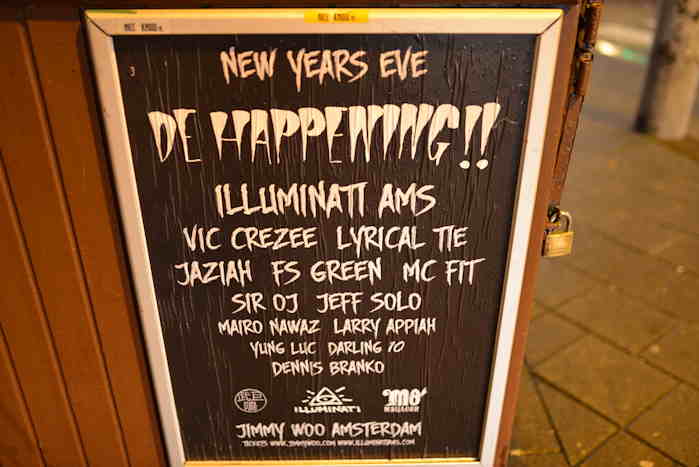 NEW YEARS EVE
DE HAPPENING!!
ILLUMINATI AMS
VIC CREZEE LYRICAL TIE
JAZIAH FS GREEN MC FIT
SIR OJ JEFF SOLO
MAIRO NAWAZ LARRY APPIAH
YUNG LUC DARLING 10
DENNIS BRANKO
ILLUMINATI
JIMMY WOO AMSTERDAM
TICKETS WWW.JIMMYWOO.COM WWW.ILLUMINATIAMS.COM